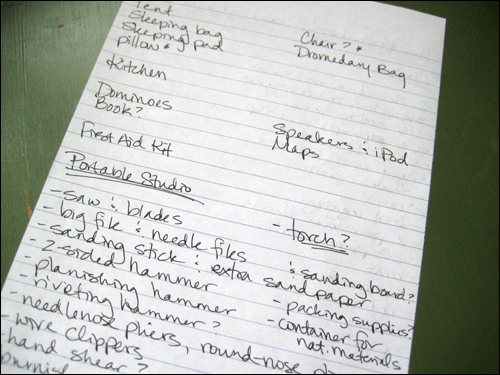 Tent
Sleeping bag
Sleeping pad
pillow *
Chair? *
Dromedary Bag
Kitchen
Dominoes
Book?
Speakers & iPod
Maps
First Aid Kit
Portable Studio
- saw & blades
- big file & needle files
- sanding stick & extra sand paper
- 2-sided hammer
- planishing hammer
- riveting hammer?
- needlenose pliers, round-nose
- wire clippers
- hand shear?
- torch?
& sanding board?
- packing supplies?
- container for
nat. materials